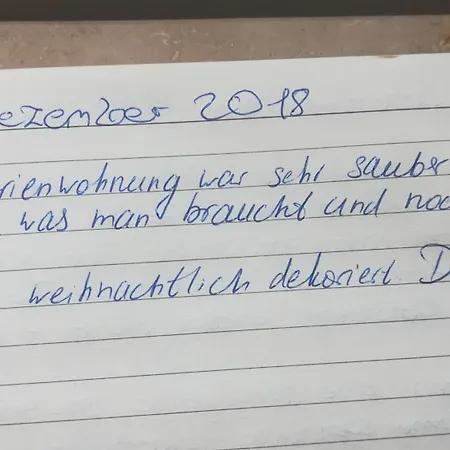 ezember 2018
rienwohnung war sehr sauber
was man braucht und noc
weihnachtlich dekoriert. D